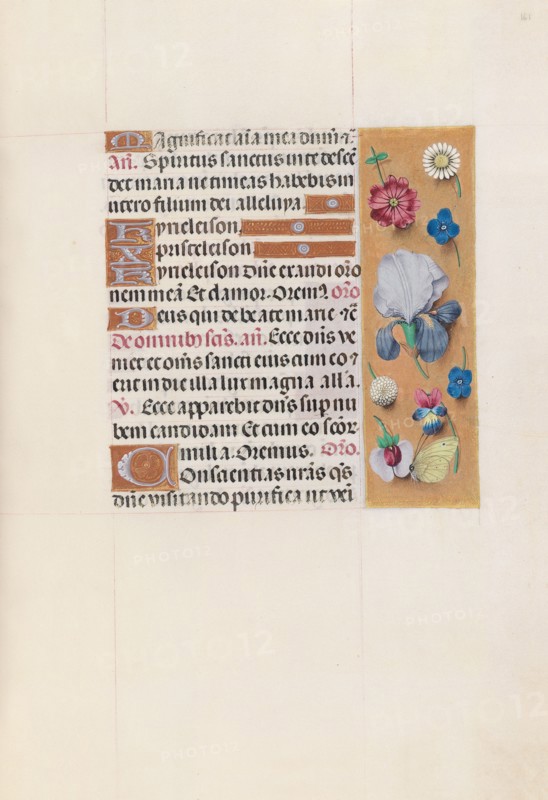 Magnificat aīa mea dūm̄ ⁊c̄
Añ. Spiritus sanctus in te descē
det maria ne timeas habebis in
utero filium dei alleluya.
Kyrieleison.
xpristeleison.
Kyrieleison Dñe exaudi orō
nem meā Et clamor. Orem̄? orō
Deus qui de beate marie ⁊c̄
De omnib9 scīs. añ. Ecce dñs ve
niet et om̄s sancti eius cum eo ⁊
erit in die illa lux magna all'a.
V. Ecce apparebit dñs sup nu
bem candidam Et cum eo scōr
milia. Oremus. Orō.
Conscientias nr̄as q̄s
dñe visitando purifica ut vei
PHOTO12